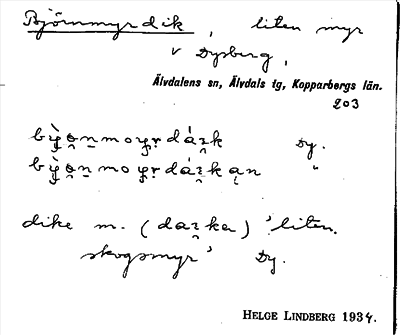 Björnmyrdik, liten myr
v Dysberg,
Älvdalens sn, Älvdals tg, Kopparbergs län.
203
Dy.
"
dike m. (daʐka) 'liten
skogsmyr' Dy.
HELGE LINDBERG 1934.